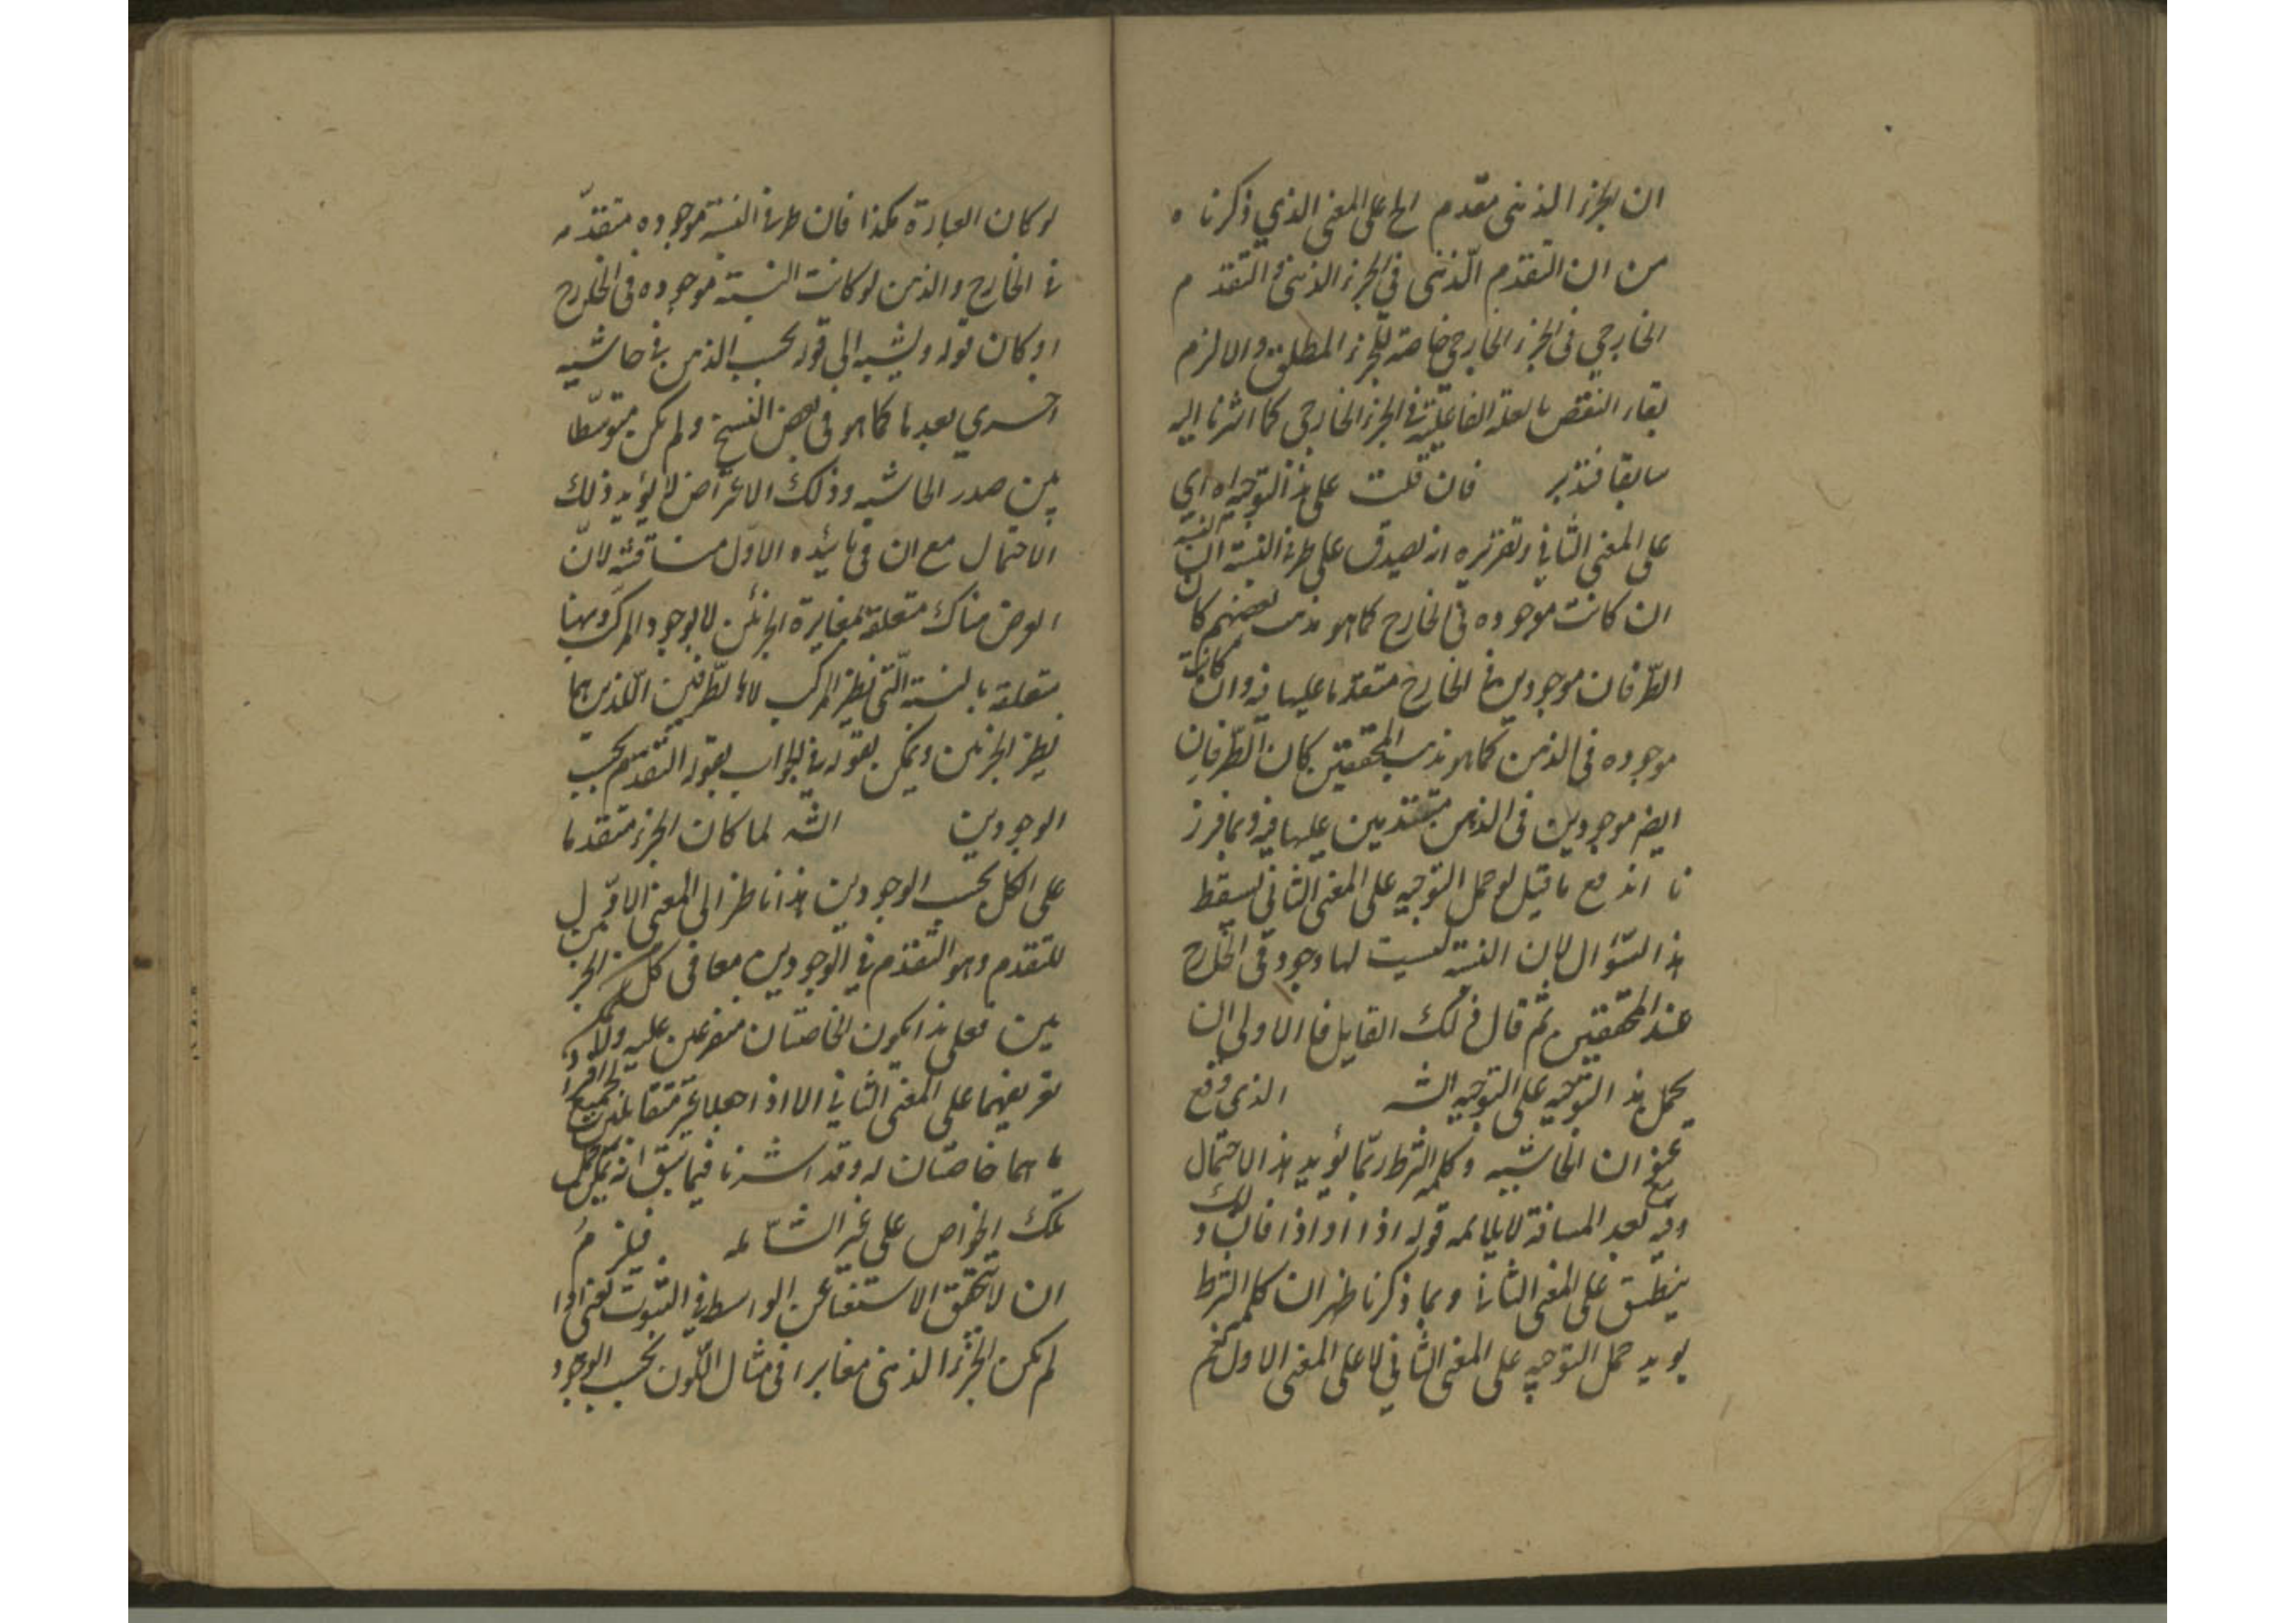 ان الجزء الذهنى مقدم الخ على المعنى الذي ذكرناه
من ان التقدم الذهنى في الجزء الذهنى و التقدم
الخارجي فى الجزء الخارجي خاصة للجزء المطلق والا لزم
بقاء النقض بالعلة الفاعلية فى الجزء الخارجي كما اشرنا اليه
سابقا فتدبر فان قلت على هذا التوجيه اه اي
على المعنى الثاني وتقريره انه يصدق على طرفى النسبة ان النسبة
ان كانت موجوده فى الخارج كما هو مذهب بعضهم كان
الطرفان موجودين في الخارج متقدما عليها فيه وان كانت
موجوده فى الذهن كما هو مذهب المحققين كان الطرفان
ايضا موجودين فى الذهن متقدمين عليها فيه وبما قرر
نا اندفع ما قيل لو حمل التوجيه على المعنى الثاني لسقط
هذا السؤال لان النسبة ليست لها وجود فى الخارج
عند المحققين ثم قال ذلك القايل فالاولى ان
يحمل هذا التوجيه على التوجيه الث الذى وقع
عنوان الحاشيه وكلمة الشرط ربما يؤيد هذا الاحتمال
وفيه مع بعد المسافة لا يلايمه قوله اذا او اذا فان ذلك و
ينطبق على المعنى الثاني وبما ذكرنا ظهر ان كلمة الشرط
يويد حمل التوجيه على المعنى الثاني لا على المعنى الاول نعم
لو كان العبارة هكذا فان طرفى النسبة موجوده متقدمه
في الخارج والذهن لو كانت النسبة موجوده فى الخارج
او كان قوله ويشبه الى قوله بحسب الذهن في حاشيه
اخرى بعدها كما هو فى بعض النسخ ولم يكن متوسطا
بين صدر الحاشيه وذلك الاعتراض لا يؤيد ذلك
الاحتمال مع ان فى تائيده الاول مناقشة لان
العرض هناك متعلقة بمغايرة الجزئين لا بوجود المركب وههنا
متعلقه بالنسبة التى نظير المركب لا بالطرفين اللذين هما
نظير الجزئين ويمكن بقوله في الجواب بقوله التقدم بحسب
الوجودين الث لما كان الجزء متقدما
على الكل بحسب الوجودين هذا ناظر الى المعنى الاول
للتقدم وهو التقدم في الوجودين معا فى كل من الجز
ئين فعلى هذا يكون الخاصتان متفرعين عليه ولا
تفريعهما على المعنى الثاني الا اذا جعلا غير متقابلين
ما هما خاصتان له وقد اشرنا فيما سبق انه يمكن حمل
تلك الخواص على غير الشامله فيلزم
ان لا يتحقق الاستغناء عن الواسطة في الثبوت يعنى اذا
لم يكن الجزء الذهنى مغايرا فى مثال اللون بحسب الوجود